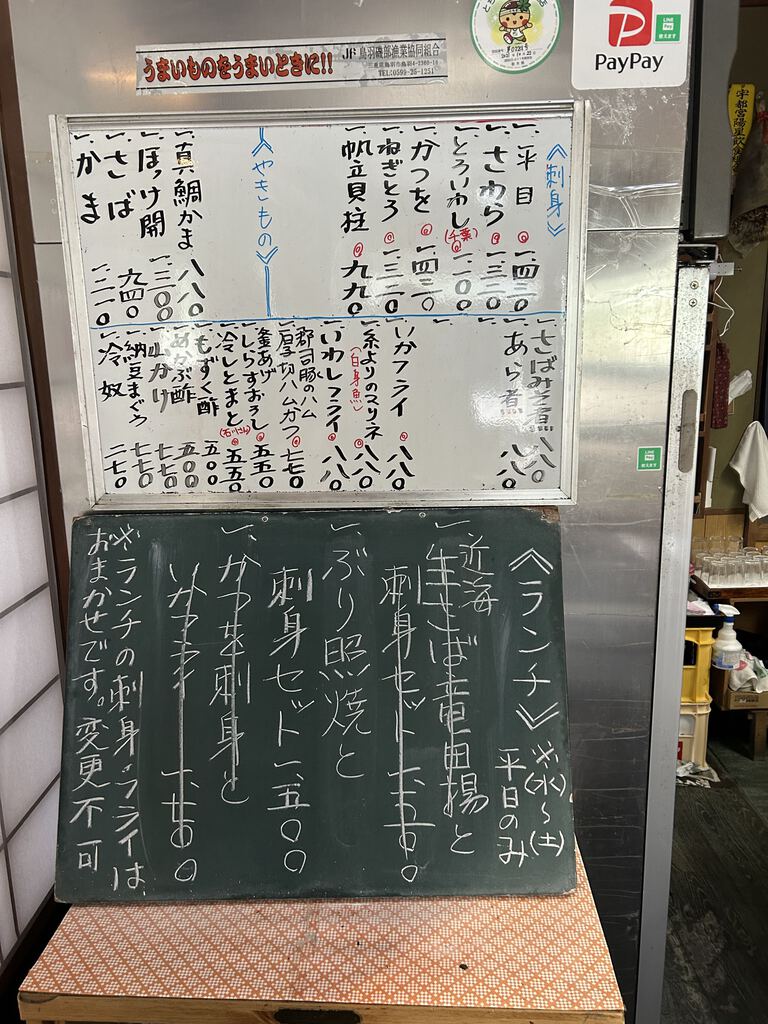 うまいものをうまいときに!!
JF 鳥羽磯部漁業協同組合
三重県鳥羽市鳥羽4-2360-16
TEL:0599-25-1251
PayPay
LINE Pay
使えます
《刺身》
一、平目 一、四三〇
一、さわら 一、三二〇
一、とろいわし(千葉) 一、一〇〇
一、かつを 一、四三〇
一、ねぎとろ 一、三二〇
一、帆立貝柱 九九〇
《やきもの》
一、真鯛かま 八八〇
一、ほっけ開 一、三〇〇
一、さば 九四〇
一、かま 一、二一〇
一、さばみそ煮 八八〇
一、あら煮 八八〇
一、いかフライ 八八〇
一、糸よりのマリネ(白身魚) 八八〇
一、いわしフライ 八八〇
一、郡司豚のハム
厚切ハムかつ 七七〇
一、釜あげ
しらすおろし 五五〇
一、冷しとまと(石川さん) 五五〇
一、もずく酢 五〇〇
一、めかぶ酢 五〇〇
一、山かけ 七七〇
一、納豆まぐろ 七七〇
一、冷奴 二七〇
《ランチ》※(水)〜(土)
平日のみ
一、近海
生さば竜田揚と
刺身セット
一、ぶり照焼と
刺身セット 一、五〇〇
一、かつを刺身と
いかフライ 一、七〇〇
※ランチの刺身・フライは、
おまかせです。変更不可
LINE Pay
使えます